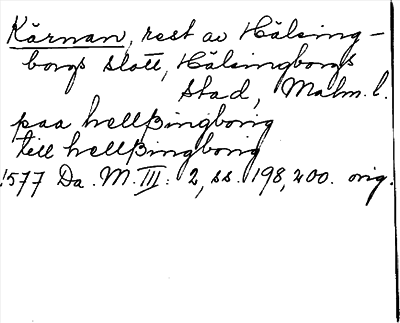 Kärnan, rest av Hälsing-
borgs slott, Hälsingborgs
stad, Malm. l.
paa hellβingborig
till hellβingborig
1577 Da. M. III: 2, ss. 198, 200. orig.